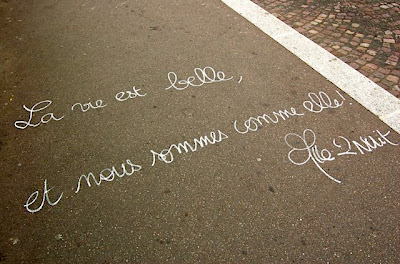 La vie est belle,
et nous sommes comme elle
Fille 2 nuit